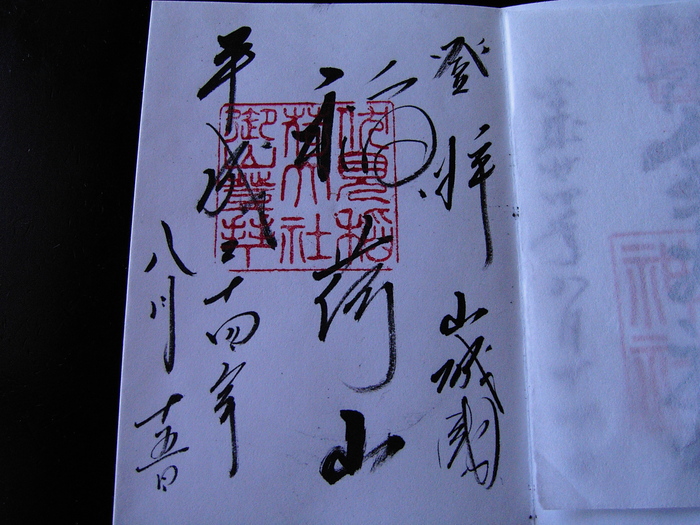 登拝 山城國
稲荷山
平成二十四年
八月十五日
伏見稲
荷大社
御山登拝